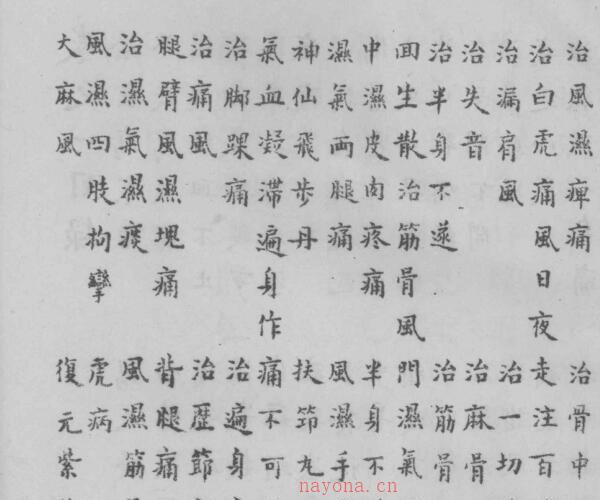 治風濕痺痛 治骨中
治白虎痛風日夜走注百
治漏肩風 治一切
治失音 治麻骨
治半身不遂 治筋骨
囬生散治筋骨風門濕氣
中濕皮肉疼痛 半身不
濕氣兩腿痛 風濕手
神仙飛步丹 扶筇丸
氣血凝滯遍身作痛不可
治脚踝痛 治遍身
治痛風 治歷節
腿臂風濕塊痛 背腿痛
治濕氣濕痰 風濕筋
風濕四肢拘攣 虎病
大麻風 復元紫
nayona.cn